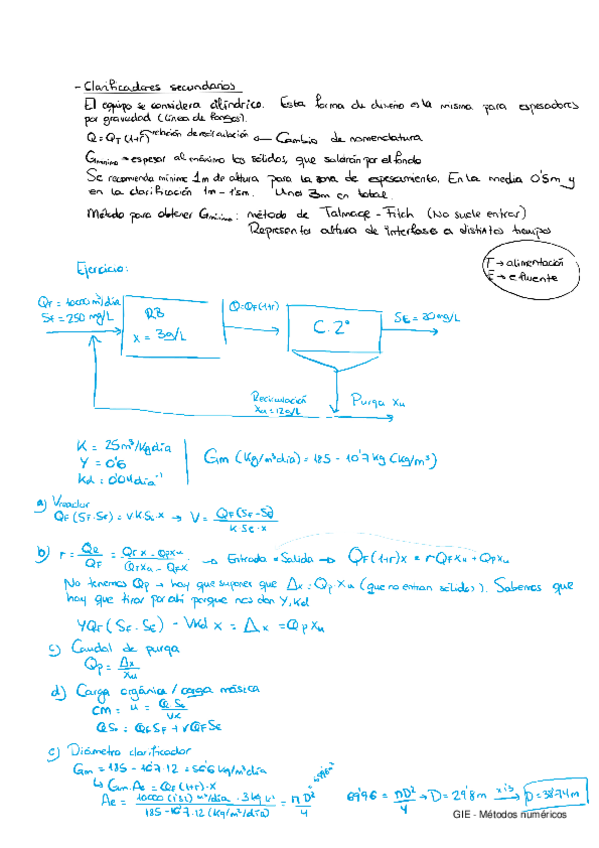 - Clarificadores secundarios
El equipo se considera cilíndrico. Esta forma de diseño es la misma para espesadores
por gravedad (línea de fangos).
Q = QT (1+r) relación de recirculación Cambio de nomenclatura
Gmínimo = espesar al máximo los sólidos, que saldrán por el fondo
Se recomienda mínimo 1m de altura para la zona de espesamiento. En la media 0'5m y
en la clarificación 1m - 1'5m. Unos 3m en total.
Método para obtener Gmínimo: método de Talmage - Fitch (No suele entrar)
Representa altura de interfase a distintos tiempos
F → alimentación
E → efluente
Ejercicio:
QF = 10000 m³/día
SF = 250 mg/L
RB
X = 3g/L
Q = QF(1+r)
C. 2º
SE = 20mg/L
Recirculación
Xu = 12g/L
Purga Xu
K = 25 m³/kg día
Y = 0'6
Kd = 0'04 día⁻¹
Gm (kg/m²día) = 185 - 10'7 kg (kg/m³)
a) Vreactor
QF (SF - SE) = V K SE X → V = QF (SF - SE) / K SE X
b) r = QR / QF = QF X - QP Xu / QF Xu - QF X → Entrada = Salida → QF (1+r) X = r QF Xu + QP Xu
No tenemos QP → hay que suponer que Δx = QP Xu (que no entran sólidos). Sabemos que
hay que tirar por ahí porque nos dan Y, Kd
Y QF (SF - SE) - V Kd X = Δx = QP Xu
c) Caudal de purga
QP = Δx / Xu
d) Carga orgánica / carga másica
CM = u = Q S0 / V X
Q S0 = QF SF + r QF SE
e) Diámetro clarificador
Gm = 185 - 10'7 · 12 = 56'6 kg/m²día
↳ Gm · Ae = QF (1+r) · X
69'96 = πD² / 4 → D = 29'8m → D = 38'74m
GIE - Métodos numéricos